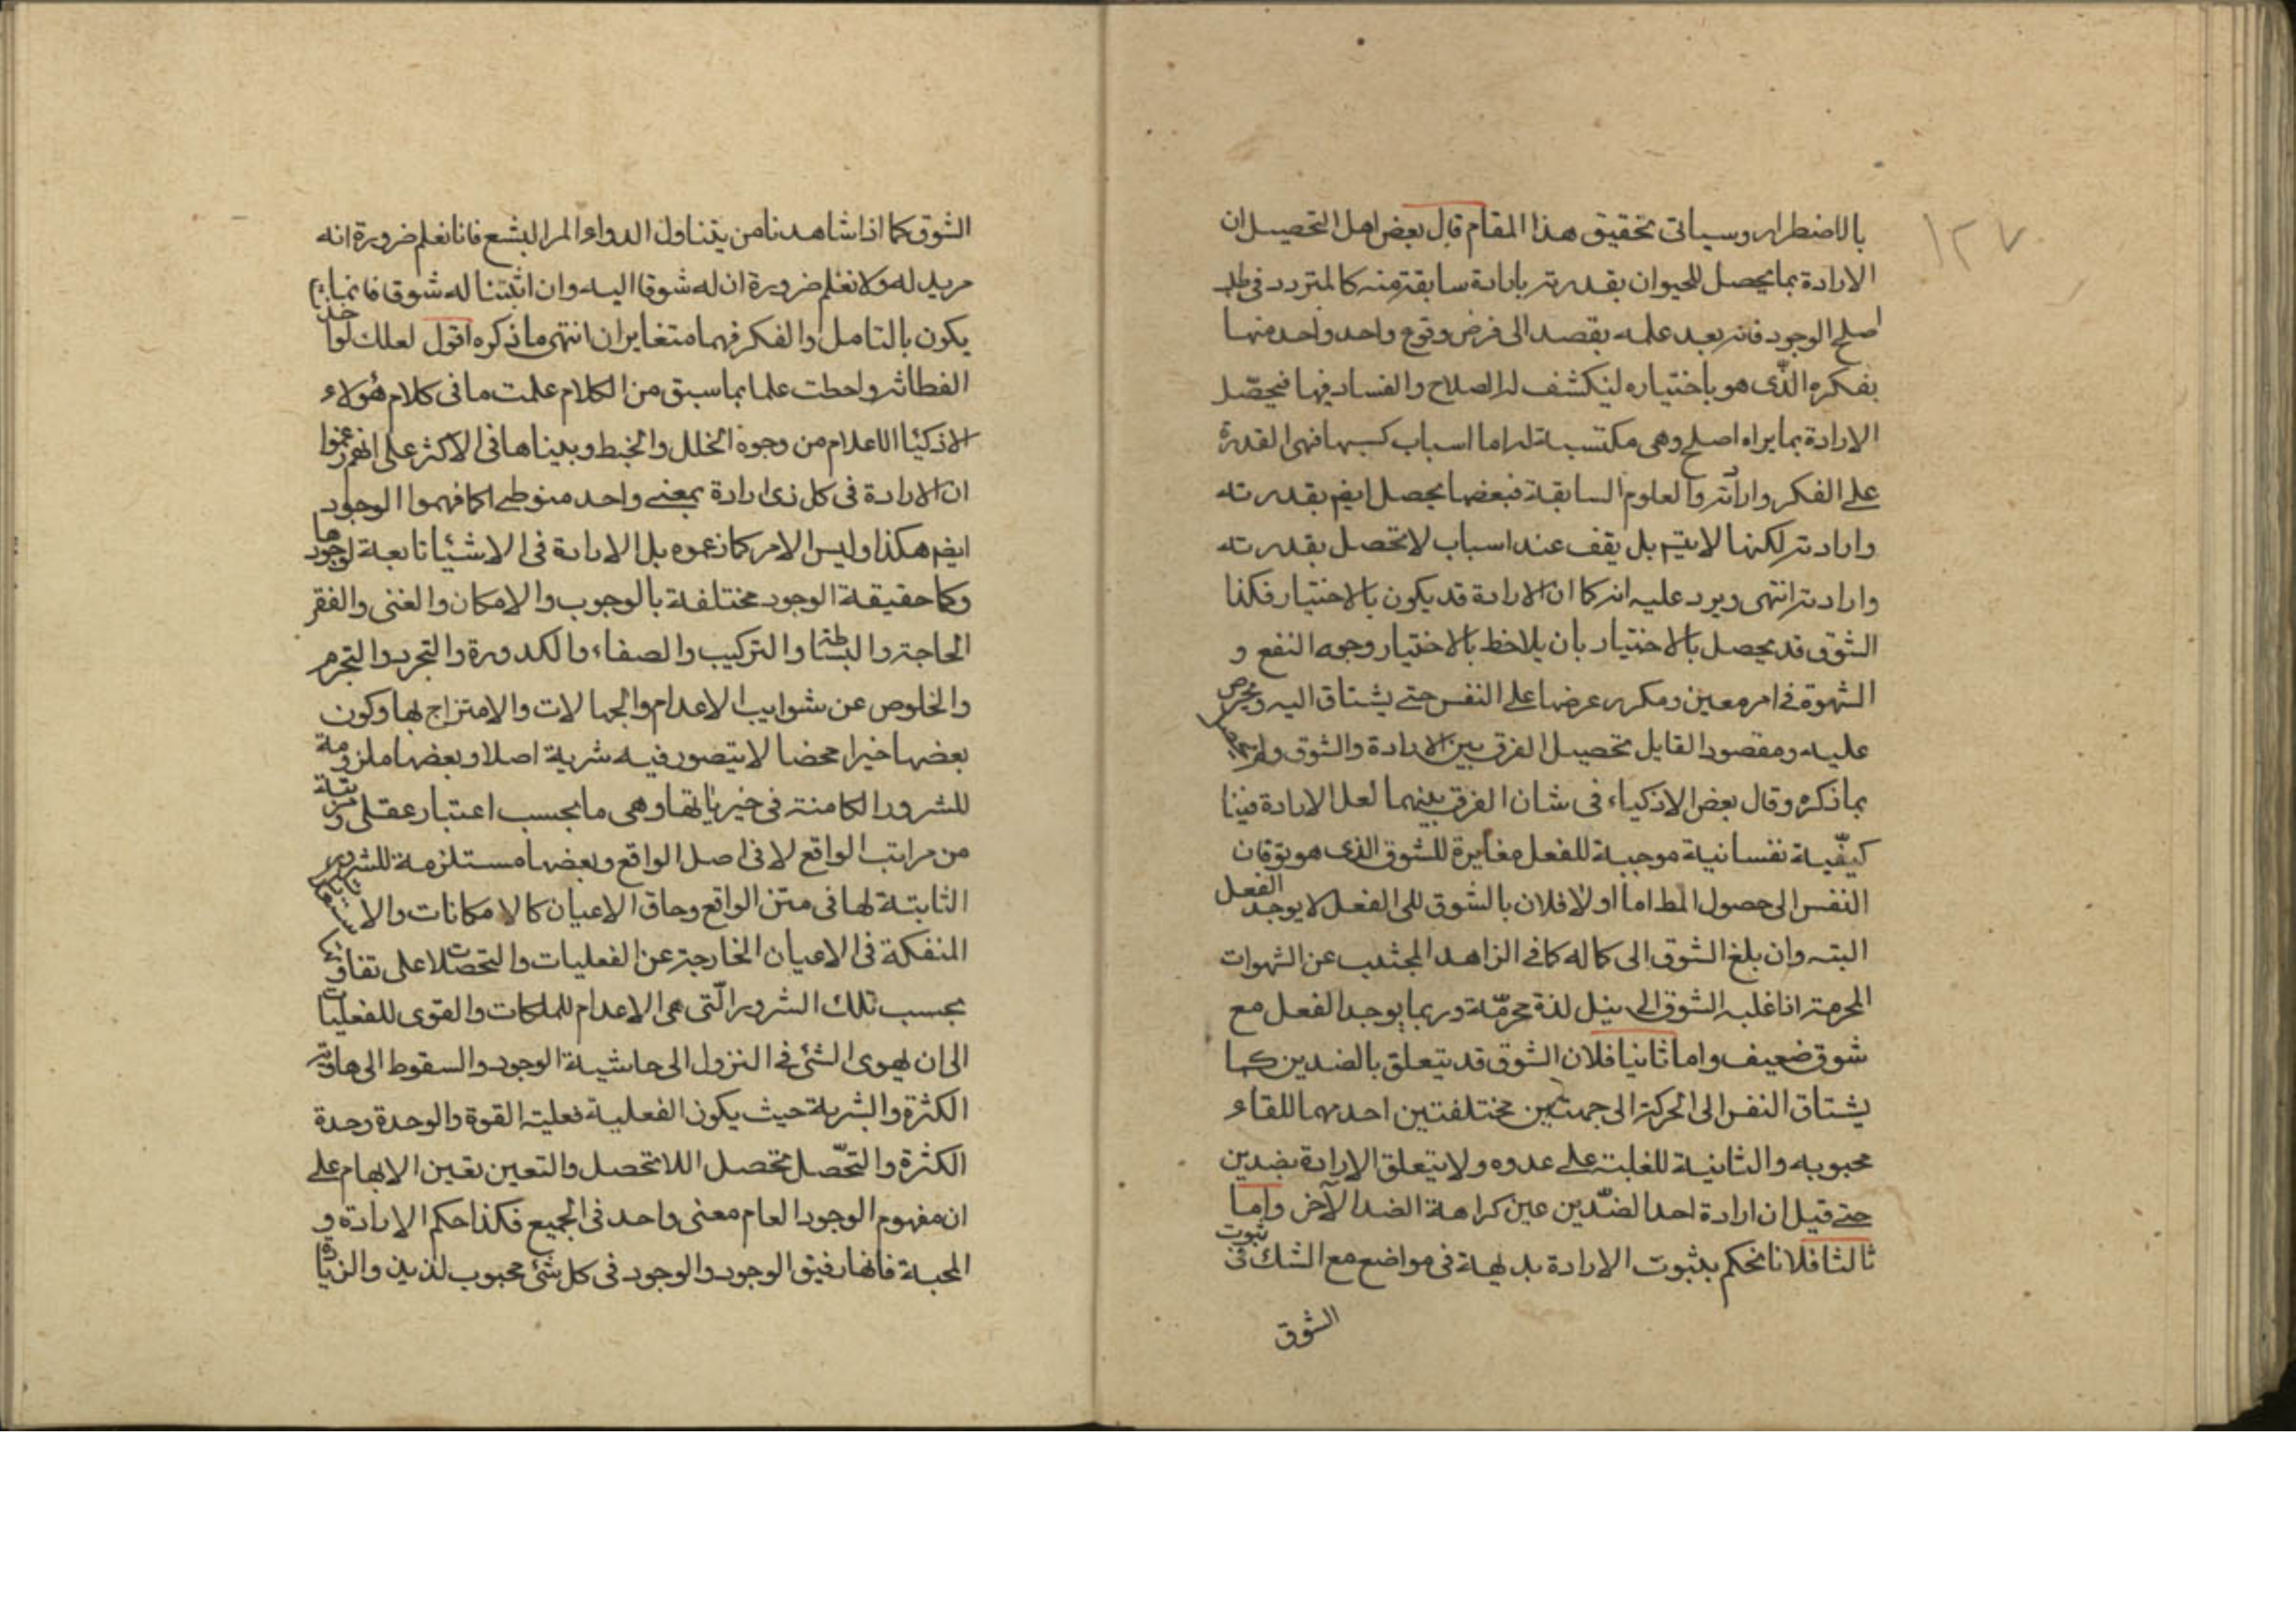 ١٢٧
بالاضطرار وسياتى تحقيق هذا المقام قال بعض اهل التحصيل ان
الارادة بما يحصل للحيوان بقدرته بارادة سابقة منه كالمتردد فى طلب
اصلح الوجود فانه بعد علمه يقصد الى فرض وقوع واحد واحد منها
بفكره الذى هو باختياره لينكشف له الصلاح والفساد فيها فيحصل
الارادة بما يراه اصلح وهى مكتسبة له اما اسباب كسبها فهى القدرة
على الفكر وارادته والعلوم السابقة فبعضها يحصل ايضا بقدرته
وارادته لكنها لا يتم بل يقف عند اسباب لا تحصل بقدرته
وارادته انتهى ويرد عليه انه كما ان الارادة قد يكون بالاختيار فكذا
الشوق قد يحصل بالاختيار بان يلاحظ بالاختيار وجوه النفع و
الشهوة فى امر معين ومكرر عرضها على النفس حتى يشتاق اليه ويحرص
عليه ومقصود القايل تحصيل الفرق بين الارادة والشوق
بما ذكره وقال بعض الاذكياء فى شان الفرق بينهما لعل الارادة فينا
كيفية نفسانية موجبة للفعل مغايرة للشوق الذى هو توقان
النفس الى حصول المط اما اولا فلان بالشوق الى الفعل لا يوجد الفعل
البته وان بلغ الشوق الى كماله كما فى الزاهد المجتنب عن الشهوات
المحرمة اذا غلبه الشوق الى نيل لذة محرمة وربما يوجد الفعل مع
شوق ضعيف واما ثانيا فلان الشوق قد يتعلق بالضدين كما
يشتاق النفس الى الحركة الى جهتين مختلفتين احدهما للقاء
محبوبه والثانية للغلبة على عدوه ولا يتعلق الارادة بضدين
حتى قيل ان ارادة احد الضدين عين كراهة الضد الآخر واما
ثالثا فلانا نحكم بثبوت الارادة بديهة فى مواضع مع الشك فى ثبوت
الشوق
الشوق كما اذا شاهدنا من يتناول الدواء المر البشع فانا نعلم ضرورة انه
مريد له ولا نعلم ضرورة ان له شوقا اليه وان اثبتنا له شوقا فانما
يكون بالتامل والفكر فهما متغايران انتهى ما ذكره اقول لعلك لو اخذت
الفطانة واحطت علما بما سبق من الكلام علمت ما فى كلام هؤلاء
الاذكيا الاعلام من وجوه الخلل والخبط وبيناها فى الاكثر على انهم زعموا
ان الارادة فى كل ذى ارادة بمعنى واحد متواطى كما فهموا الوجود
ايضا هكذا وليس الامر كما زعموه بل الارادة فى الاشيا تابعة لوجودها
وكما حقيقة الوجود مختلفة بالوجوب والامكان والغنى والفقر
الحاجة والبساطة والتركيب والصفاء والكدورة والتجرد والتجرم
والخلوص عن شوايب الاعدام والجهالات والامتزاج بها وكون
بعضها خيرا محضا لا يتصور فيه شرية اصلا وبعضها ملزومة
للشرور الكامنة فى خيرياتها وهى ما بحسب اعتبار عقلى ومرتبة
من مراتب الواقع لا فى اصل الواقع وبعضها مستلزمة للشرور
الثابتة لها فى متن الواقع وحاق الاعيان كالامكانات والاستعدادات
المنفكة فى الاعيان الخارجة عن الفعليات والتحصلات لا على تفاوت
بحسب تلك الشرور التى هى الاعدام للملكات والقوى للفعليات
الى ان يهوى الشئ فى النزول الى حاشية الوجود والسقوط الى هاوية
الكثرة والشرية حيث يكون الفعلية فعلية القوة والوحدة وحدة
الكثرة والتحصل تحصل اللاتحصل والتعين تعين الابهام على
ان مفهوم الوجود العام معنى واحد فى الجميع فكذا حكم الارادة و
المحبة فانها رفيق الوجود والوجود فى كل شئ محبوب لذيذ والزيادة